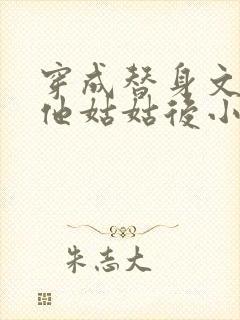 穿成替身文
他姑姑後小
朱志大